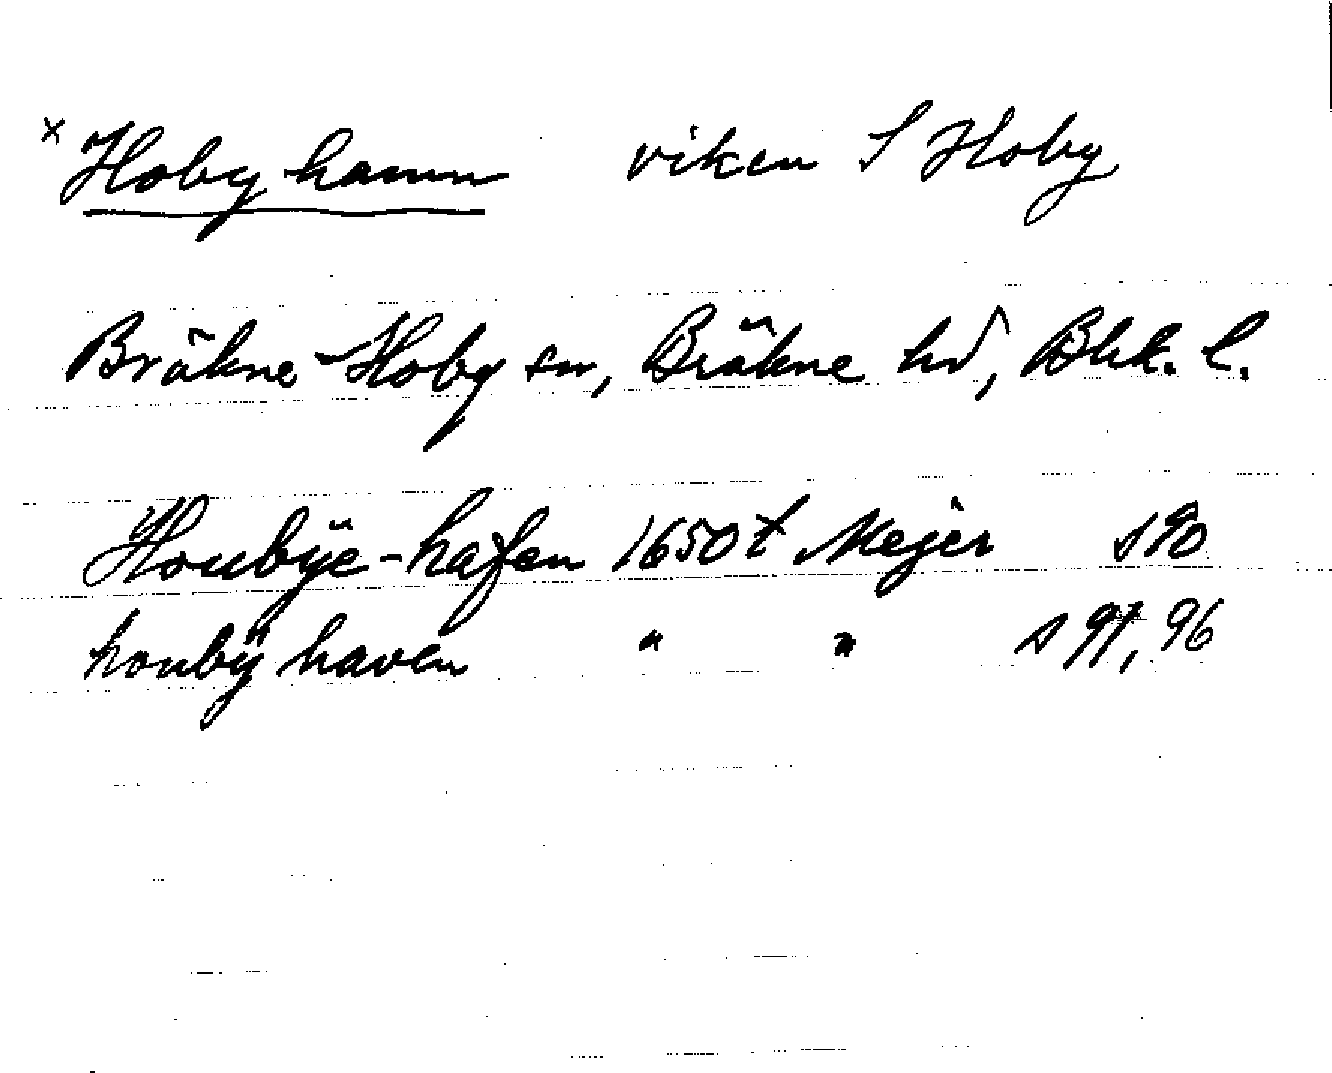 x Hoby hamn viken S Hoby
Bräkne-Hoby sn, Bräkne hd, Blek. l.
Houbÿe-hafen 1650 t Mejer s 90
houbÿ haven " " s 91, 96